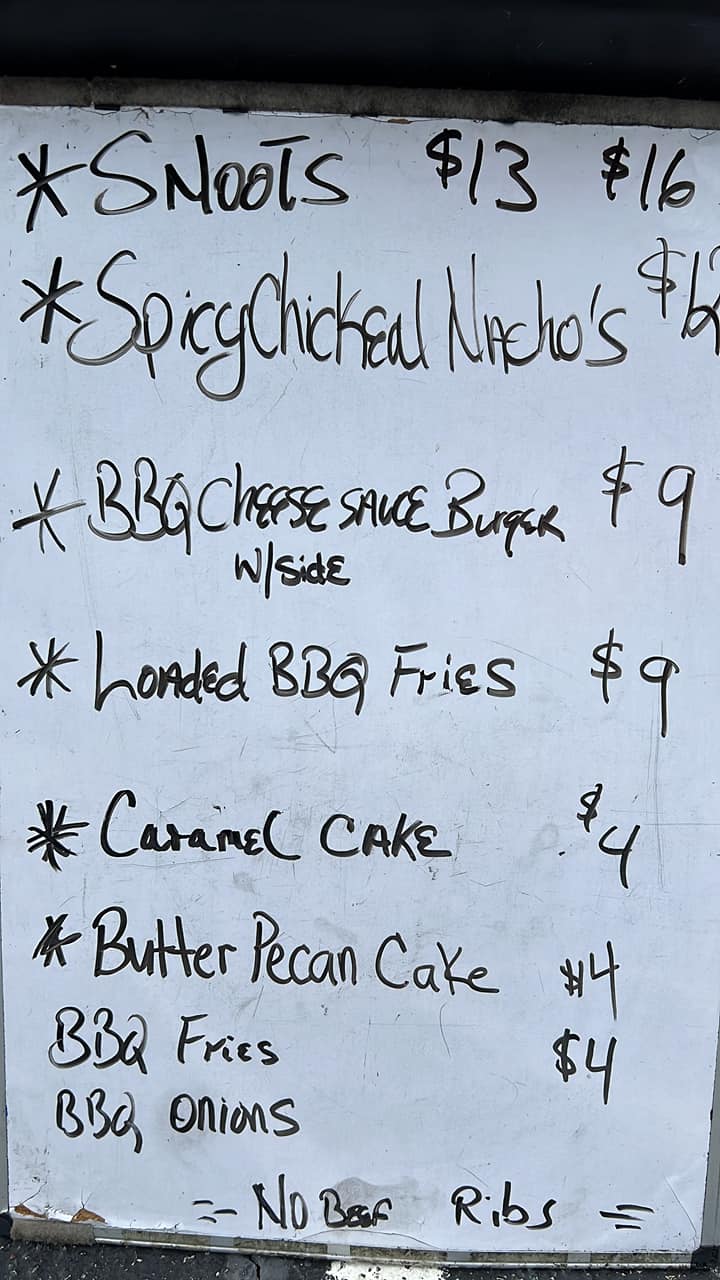 * SNOOTS $13 $16
* Spicy Chicken Nacho's
* BBQ CHEESE SAUCE BURGER $9
W/SIDE
* LOADED BBQ FRIES $9
* CARAMEL CAKE $4
* Butter Pecan Cake $4
BBQ FRIES $4
BBQ ONIONS
=- NO BEEF Ribs =